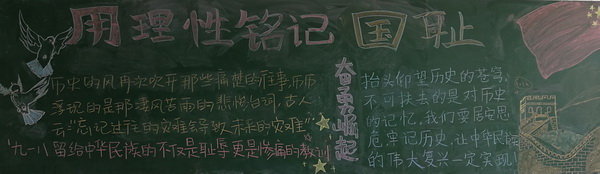 用理性铭记国耻
历史的风再次吹开那些痛楚的往事,历历
浮现的是那凄风苦雨的悲惨诗词,古人
云"忘记过往的灾难会导致未来的灾难"
"九一八留给中华民族的不仅是耻辱更是惨痛的教训
奋勇崛起
抬头仰望历史的苍穹,
不可抹去的是对历史
的记忆,我们要居安思
危牢记历史,让中华民族
的伟大复兴一定实现!